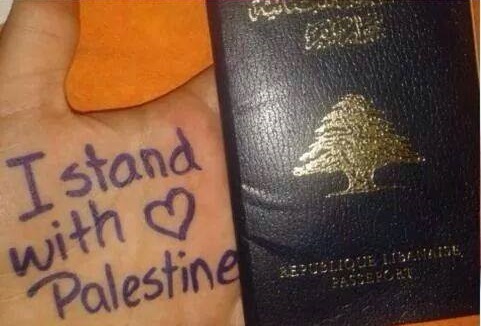 I stand
with ♡
Palestine
REPUBLIQUE LIBANAISE
PASSEPORT